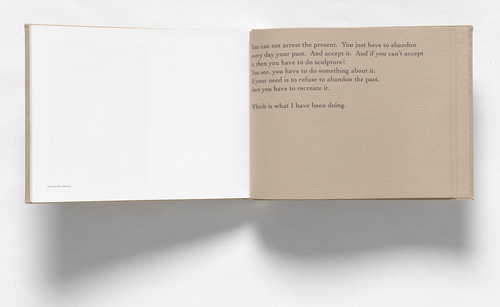 You can not arrest the present. You just have to abandon
every day your past. And accept it. And if you can't accept
it, then you have to do sculpture!
You see, you have to do something about it.
If your need is to refuse to abandon the past,
then you have to recreate it.
Which is what I have been doing.